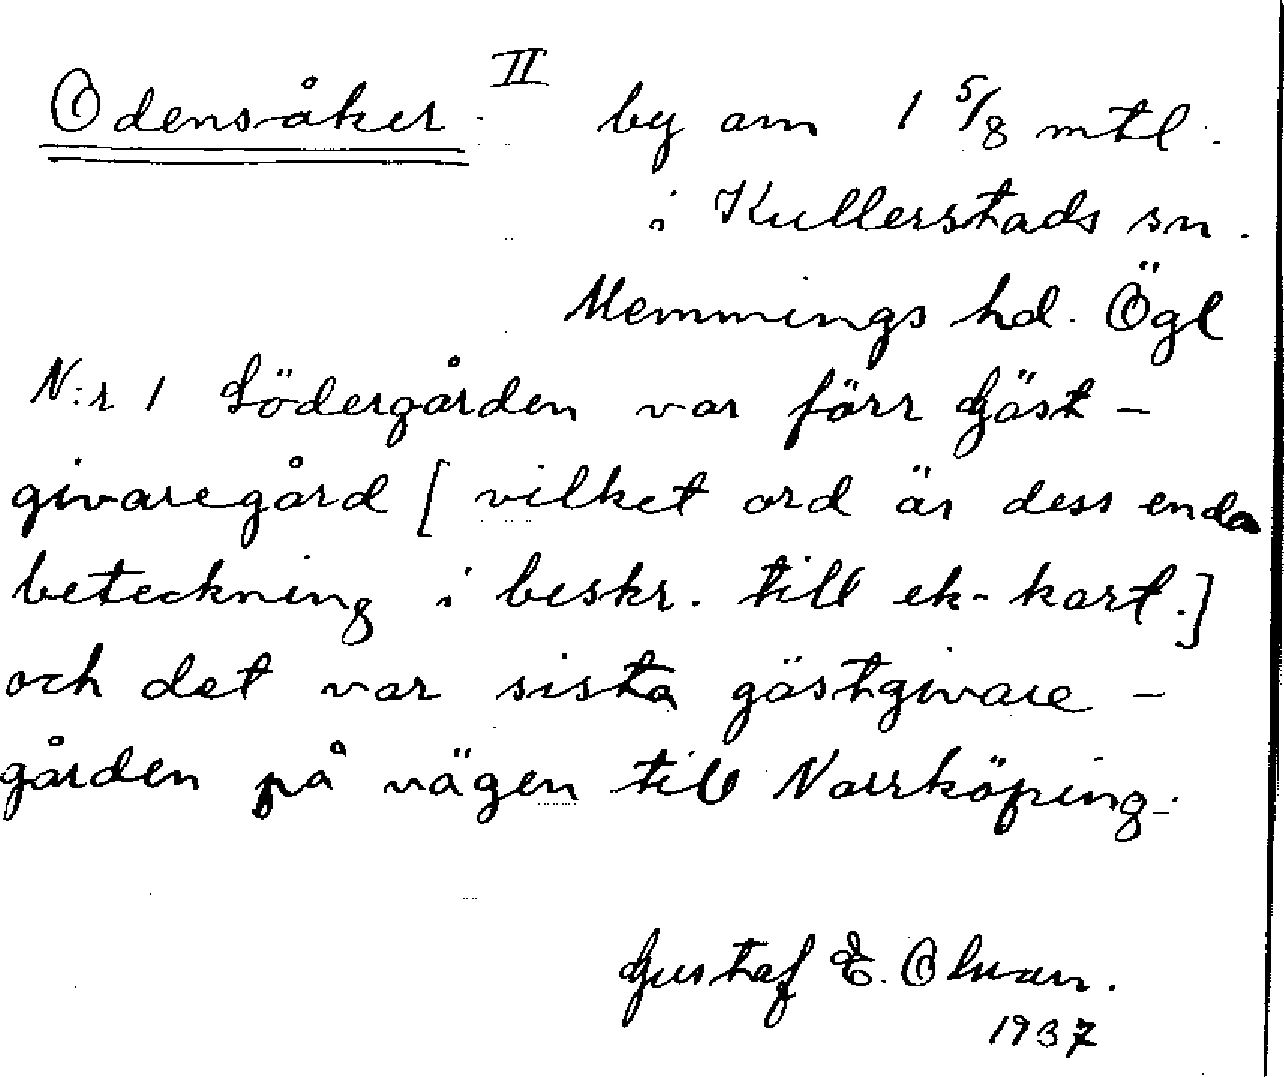 Odensåker. II by om 1 5/8 mtl.
i Kullerstads sn.
Memmings hd. Ögl
N:r 1 Södergården var förr Gäst-
givaregård [vilket ord är dess enda
beteckning i beskr. till ek-kart.]
och det var sista gästgivare-
gården på vägen till Norrköping.
Gustaf E. Olsson.
1937